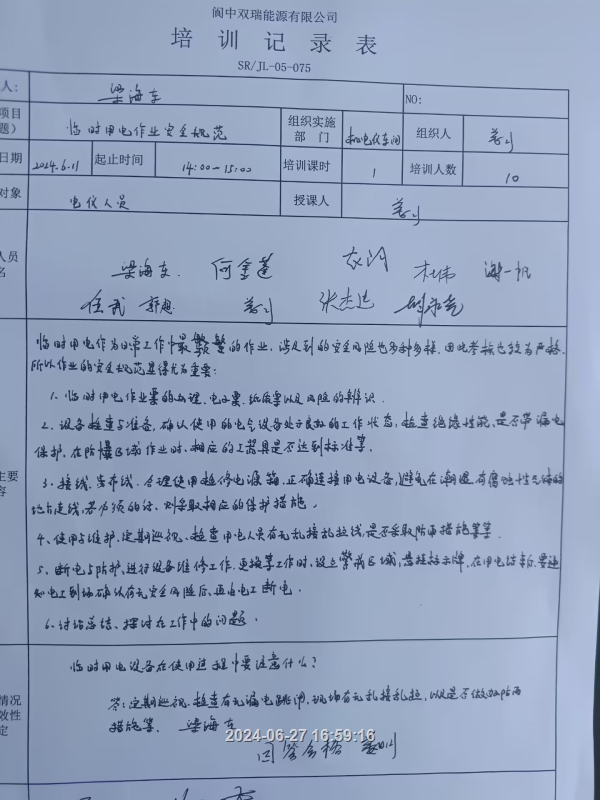 阆中双瑞能源有限公司
培训记录表
SR/JL-05-075
人： 梁海东 NO:
项目 临时用电作业安全规范 组织实施 组织人 姜
题） 部 门
日期 2024.6.11 起止时间 14:00-15:00 培训课时 1 培训人数 10
对象 电仪人员 授课人 姜
人员 梁海东. 何金莲 杜伟 谢一帆
名 任武 郭想 姜 张杰
临时用电作为日常工作中最繁繁的作业，涉及到的安全风险也多种多样，因此考核也较为严格，
所以作业的安全规范显得尤为重要：
1. 临时用电作业票的办理、电工票、纸质票以及风险的辨识.
2. 设备检查与准备，确认使用的电气设备处于良好的工作状态，检查绝缘性能、是否带漏电
保护，在防爆区域作业时，相应的工器具是否达到标准等。
主要 3. 接线、安布线. 合理使用检修电源箱，正确连接用电设备，避免在潮湿、有腐蚀性气体的
容 地方走线，若必须的话，则采取相应的保护措施。
4、使用与维护，定期巡视、检查用电人员有无乱接乱拉线，是否采取防雨措施等等.
5、断电与防护，进行设备维修工作，更换等工作时，设立警戒区域，悬挂标示牌，在用电结束后，要通
知电工到场确认有无安全风险后，再由电工断电.
6. 讨论总结、探讨在工作中的问题.
临时用电设备在使用过程中要注意什么？
情况 答：定期巡视，检查有无漏电跳闸，现场有无乱接乱拉，以及是否做好防雨
效性 措施等. 梁海东
定 2024-06-27 16:59:16
回答合格 姜